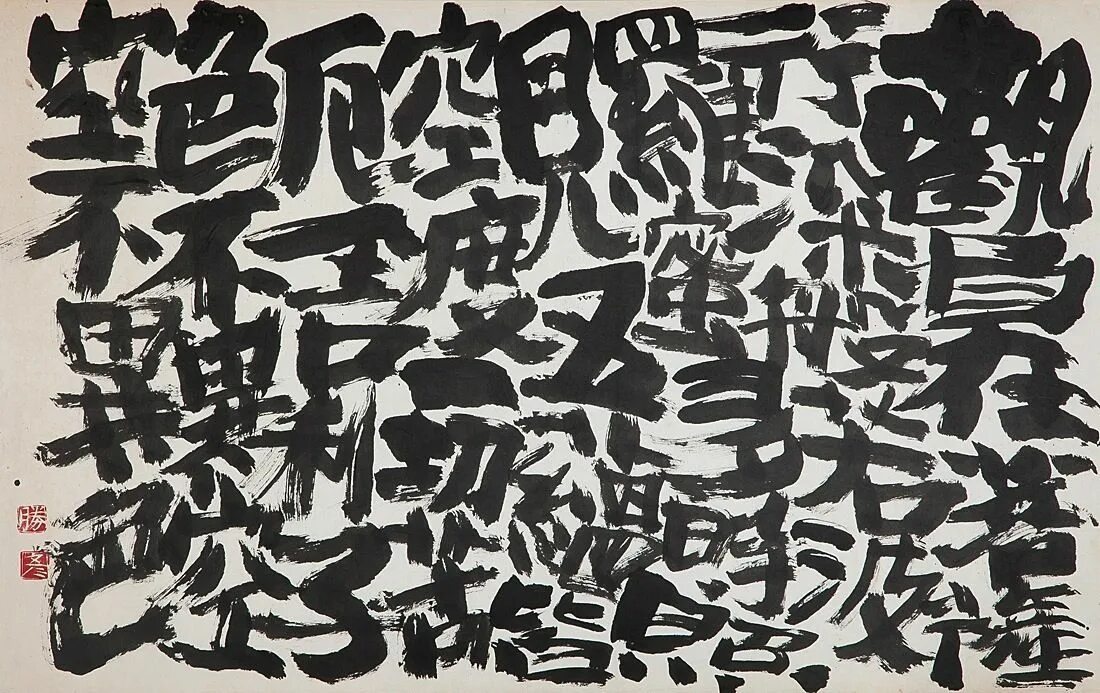 觀自在菩薩
行深般若波
羅蜜多時照
見五蘊皆
空度一切苦
厄舍利子
色不異空
空不異色
勝
彥